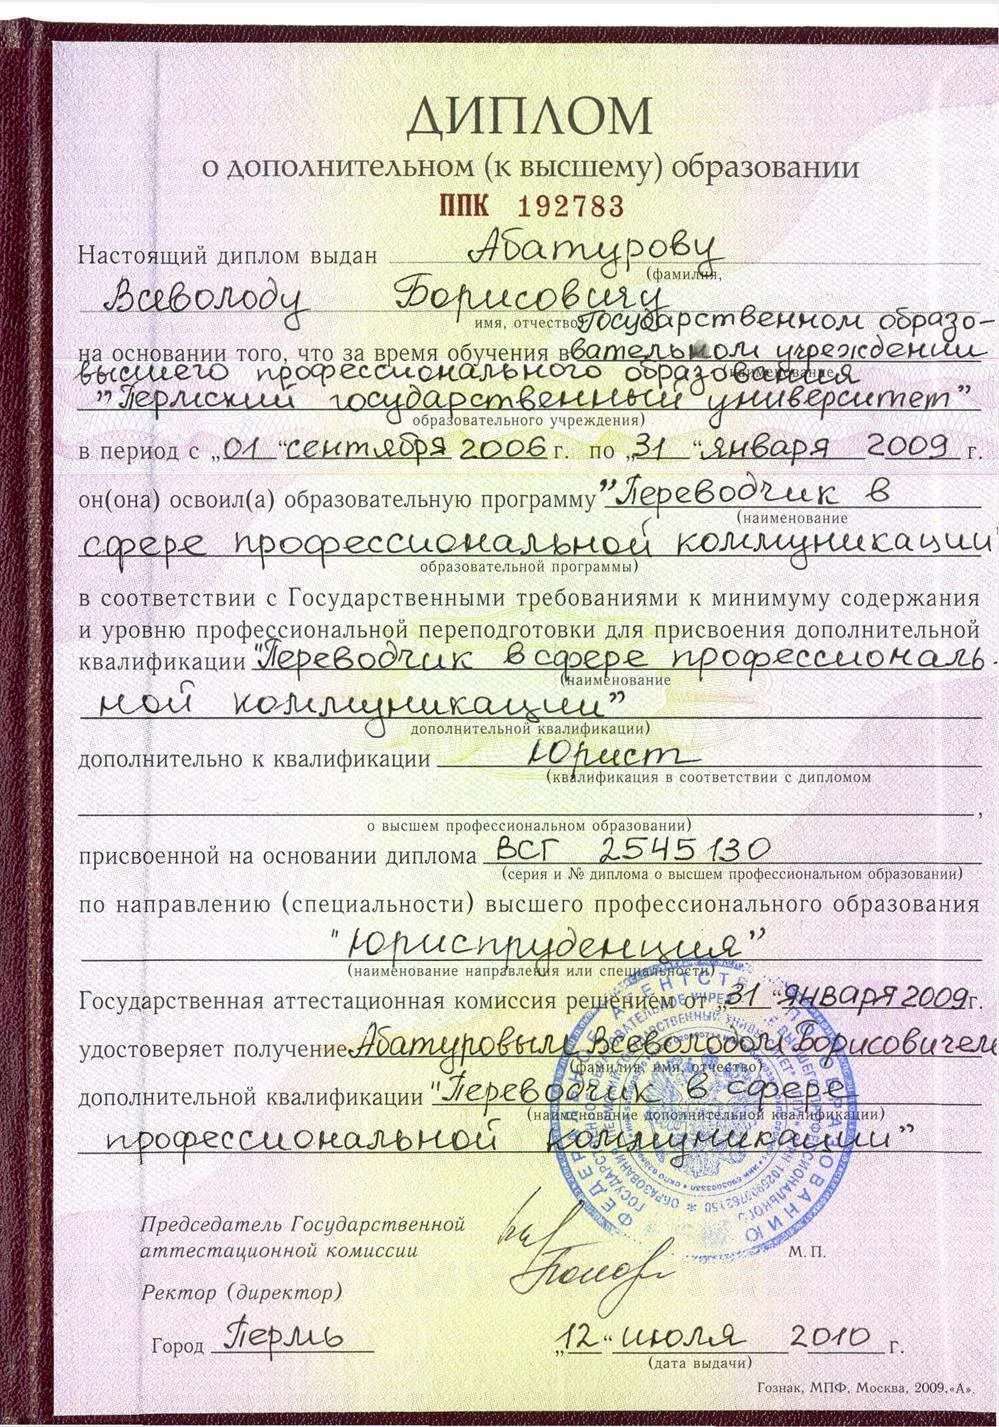 ДИПЛОМ
о дополнительном (к высшему) образовании
ППК 192783
Настоящий диплом выдан Абатурову
(фамилия,
Всеволоду Борисовичу
имя, отчество) Государственном образо-
на основании того, что за время обучения в вательном учреждении
(наименование
высшего профессионального образования
"Пермский государственный университет"
образовательного учреждения)
в период с „01 “ сентября 2006 г. по „31 “ января 2009 г.
он(она) освоил(а) образовательную программу "Переводчик в
(наименование
сфере профессиональной коммуникации"
образовательной программы)
в соответствии с Государственными требованиями к минимуму содержания
и уровню профессиональной переподготовки для присвоения дополнительной
квалификации "Переводчик в сфере профессиональ-
(наименование
ной коммуникации"
дополнительной квалификации)
дополнительно к квалификации Юрист
(квалификация в соответствии с дипломом
,
о высшем профессиональном образовании)
присвоенной на основании диплома ВСГ 2545130
(серия и № диплома о высшем профессиональном образовании)
по направлению (специальности) высшего профессионального образования
"Юриспруденция"
(наименование направления или специальности)
Государственная аттестационная комиссия решением от „31 “ января 2009 г.
удостоверяет получение Абатуровым Всеволодом Борисовичем
(фамилия, имя, отчество)
дополнительной квалификации "Переводчик в сфере
(наименование дополнительной квалификации)
профессиональной коммуникации"
ФЕДЕРАЛЬНОЕ АГЕНТСТВО ПО ОБРАЗОВАНИЮ
Председатель Государственной
аттестационной комиссии
М.П.
Ректор (директор)
Город Пермь
„12 “ июля 2010 г.
(дата выдачи)
Гознак, МПФ, Москва, 2009.«А».